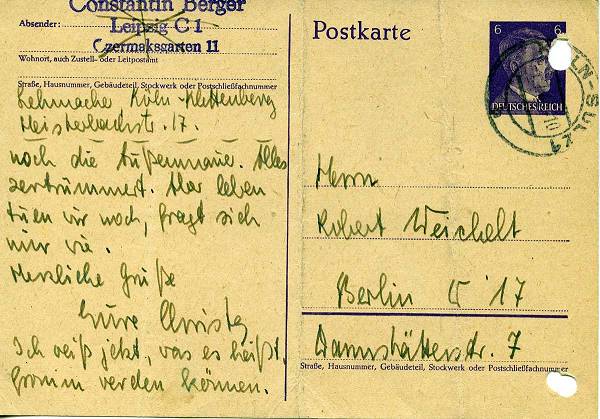 Constantin Berger
Absender: Leipzig C 1
Czermaksgarten 11
Wohnort, auch Zustell- oder Leitpostamt
Straße, Hausnummer, Gebäudeteil, Stockwerk oder Postschließfachnummer
Lehmacher, Köln-Klettenberg
Meisterbachstr. 17.
noch die Außenmauer. Alles
zertrümmert. Nur leben
tuen wir noch, fragt sich
nur wie.
Herzliche Grüße
Eure Christa
Ich weiß jetzt, was es heißt,
fromm werden können.
Postkarte
6 6
DEUTSCHES REICH
KÖLN-SÜLZ 1
Herrn
Robert Weichelt
Berlin O 17
Darmstätterstr. 7
Straße, Hausnummer, Gebäudeteil, Stockwerk oder Postschließfachnummer